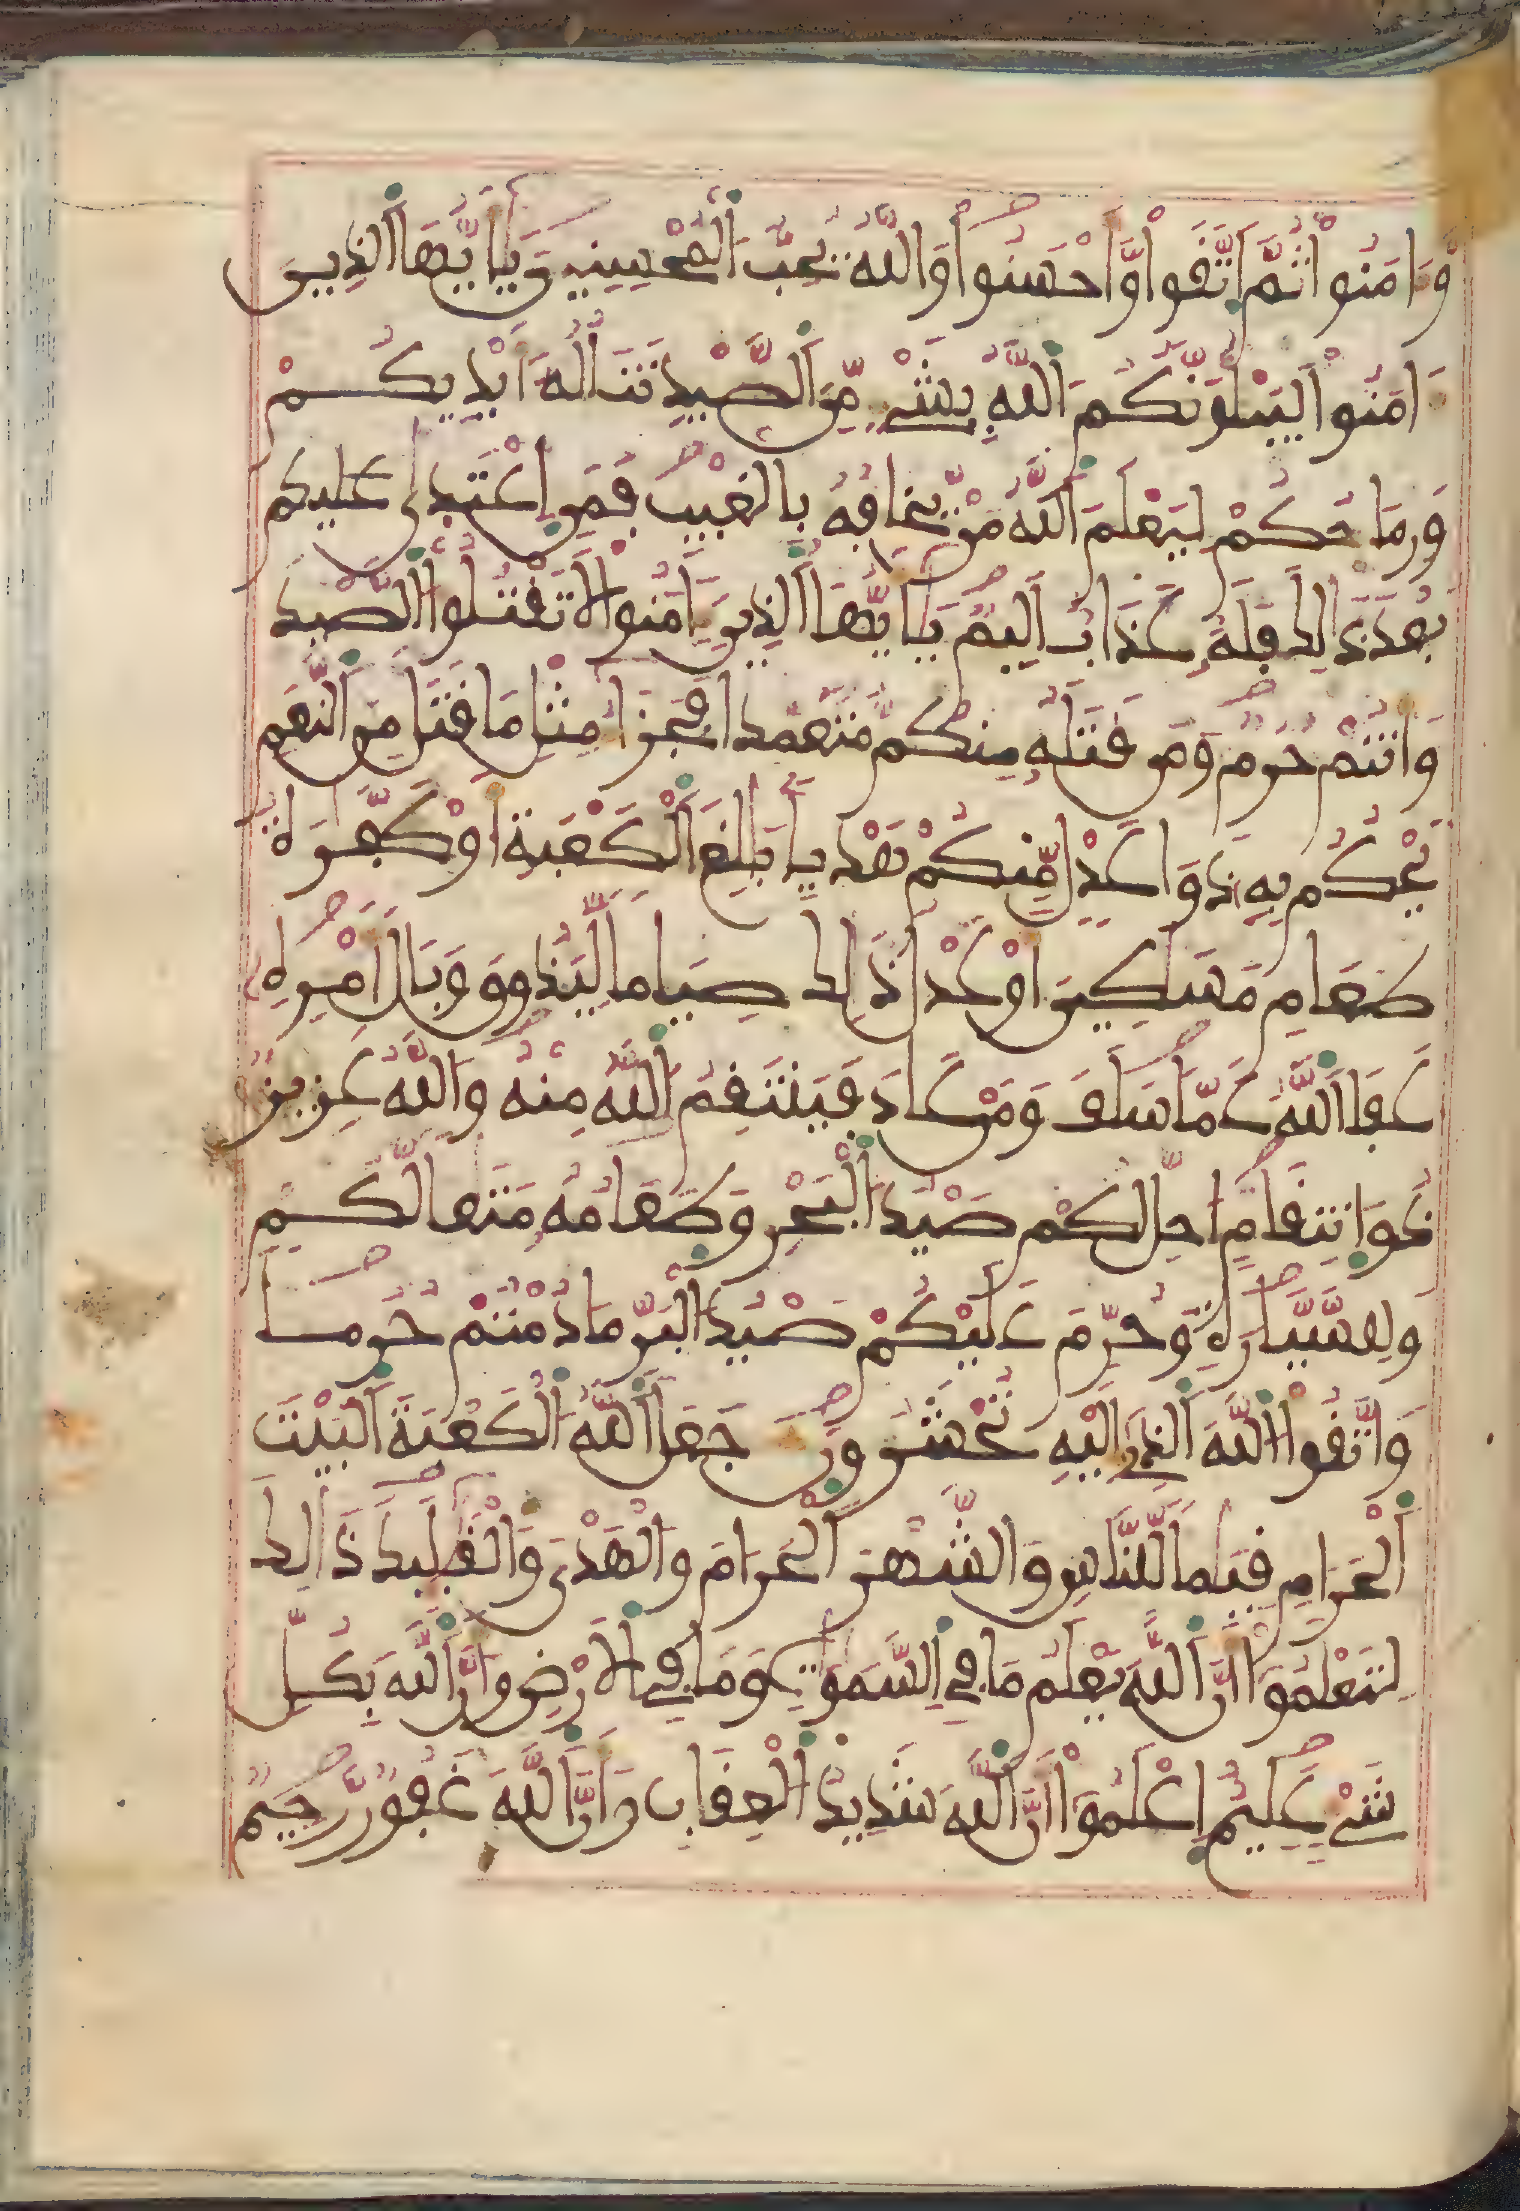 وَّءَامَنُواْ ثُمَّ اَتَّقَواْ وَّأَحْسَنُواْ وَاللَّهُ يُحِبُّ اَلْمُحْسِنِينَ يَٰأَيُّهَا اَلذِينَ
ءَامَنُواْ لَيَبْلُوَنَّكُمُ اَللَّهُ بِشَےْءٍ مِّنَ اَلصَّيْدِ تَنَالُهُ أَيْدِيكُمْ
وَرِمَاحُكُمْ لِيَعْلَمَ اَللَّهُ مَنْ يَّخَافُهُ بِالْغَيْبِ فَمَنِ اِعْتَدَىٰ
بَعْدَ ذَٰلِكَ فَلَهُ عَذَابٌ اَلِيمٌ يَٰأَيُّهَا اَلذِينَ ءَامَنُواْ لَا تَقْتُلُواْ اَلصَّيْدَ
وَأَنتُمْ حُرُمٌ وَمَن قَتَلَهُ مِنكُم مُّتَعَمِّدا فَجَزَآءُ مِثْلِ مَا قَتَلَ مِنَ اَلنَّعَمِ
يَحْكُمُ بِهِ ذَوَا عَدْلٍ مِّنكُمْ هَدْياَ بَٰلِغَ اَلْكَعْبَةِ أَوْ كَفَّٰرَةُ
طَعَامِ مَسَٰكِينَ أَوْ عَدْلُ ذَٰلِكَ صِيَاما لِّيَذُوقَ وَبَالَ أَمْرِهِ
عَفَا اَللَّهُ عَمَّا سَلَفَ وَمَنْ عَادَ فَيَنتَقِمُ اُللَّهُ مِنْهُ وَاللَّهُ عَزِيزٌ
ذُو اَنتِقَامٍ احِلَّ لَكُمْ صَيْدُ اَلْبَحْرِ وَطَعَامُهُ مَتَٰعا لَّكُمْ
وَلِلسَّيَّارَةِ وَحُرِّمَ عَلَيْكُمْ صَيْدُ اَلْبَرِّ مَا دُمْتُمْ حُرُما
وَاتَّقُواْ اَللَّهَ اَلذِے إِلَيْهِ تُحْشَرُونَ جَعَلَ اَللَّهُ اَلْكَعْبَةَ اَلْبَيْتَ
اَلْحَرَامَ قِيَٰما لِّلنَّاسِ وَالشَّهْرَ اَلْحَرَامَ وَالْهَدْيَ وَالْقَلَٰئِدَ ذَٰلِكَ
لِتَعْلَمُواْ أَنَّ اَللَّهَ يَعْلَمُ مَا فِے اِلسَّمَٰوَٰتِ وَمَا فِے اِلَارْضِ وَأَنَّ اَللَّهَ بِكُلِّ
شَےْءٍ عَلِيمٌ اِعْلَمُواْ أَنَّ اَللَّهَ شَدِيدُ اُلْعِقَابِ وَأَنَّ اَللَّهَ غَفُورٌ رَّحِيمٌ